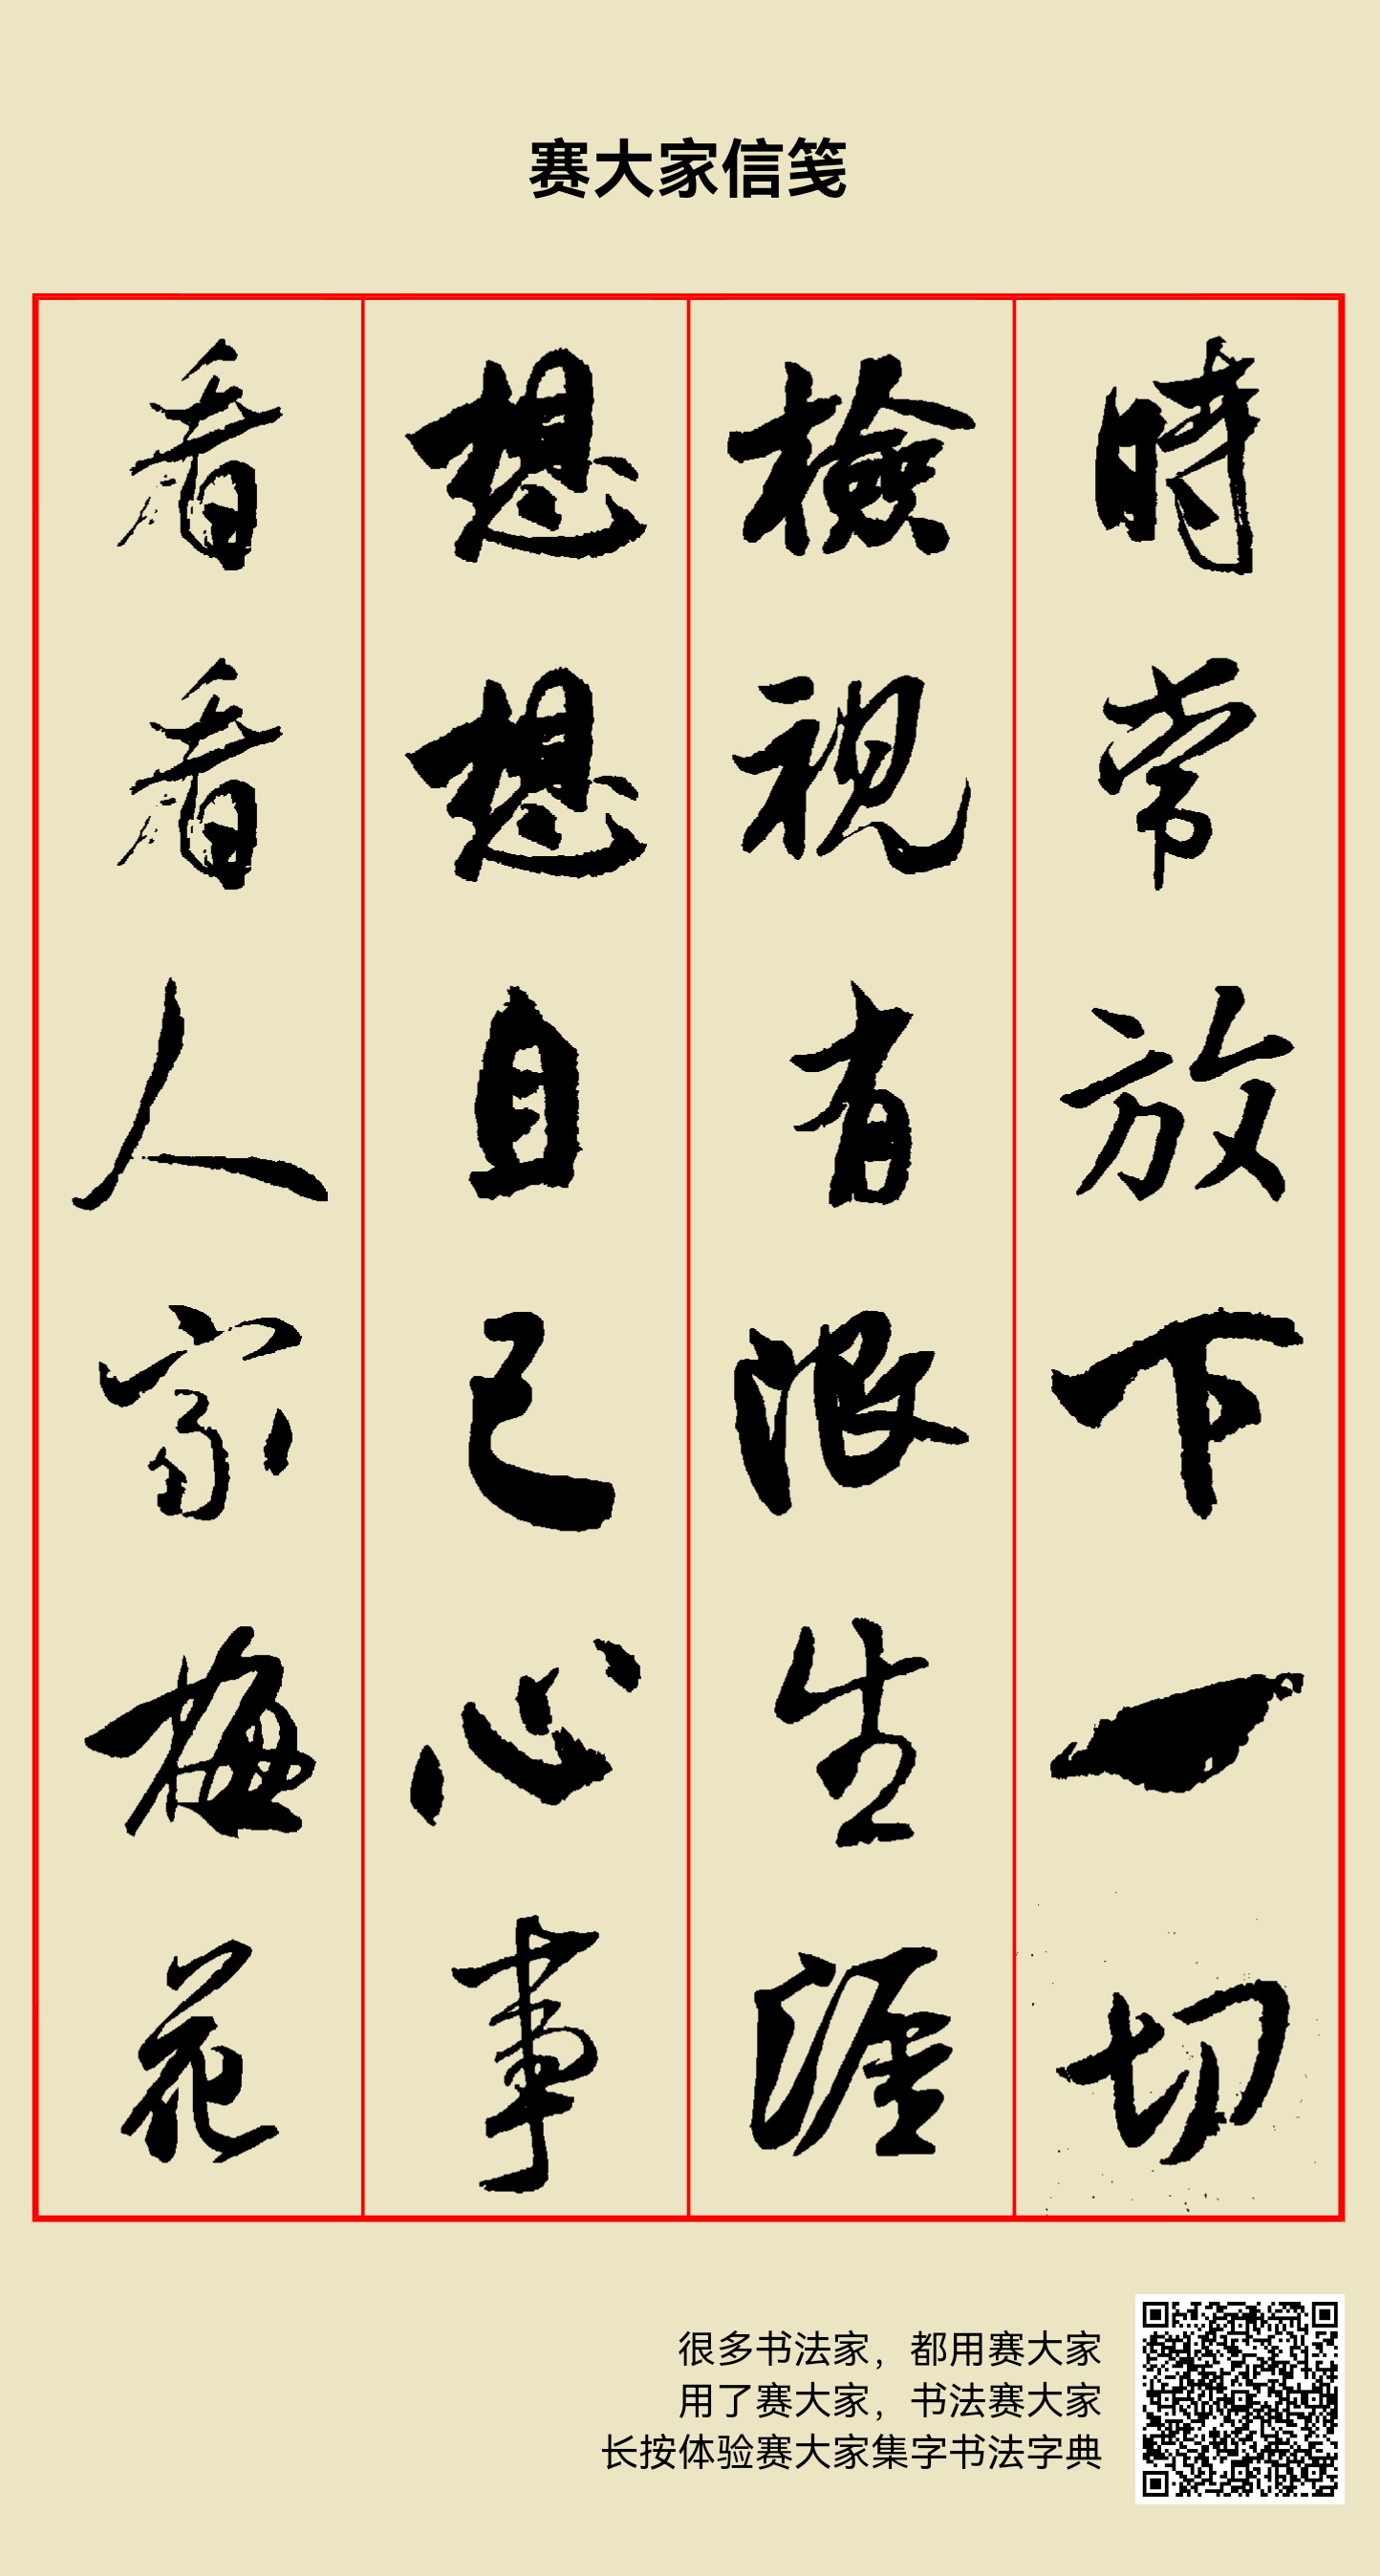 赛大家信笺
時常放下一切
檢視有限生涯
想想自己心事
看看人家梅花
很多书法家，都用赛大家
用了赛大家，书法赛大家
长按体验赛大家集字书法字典